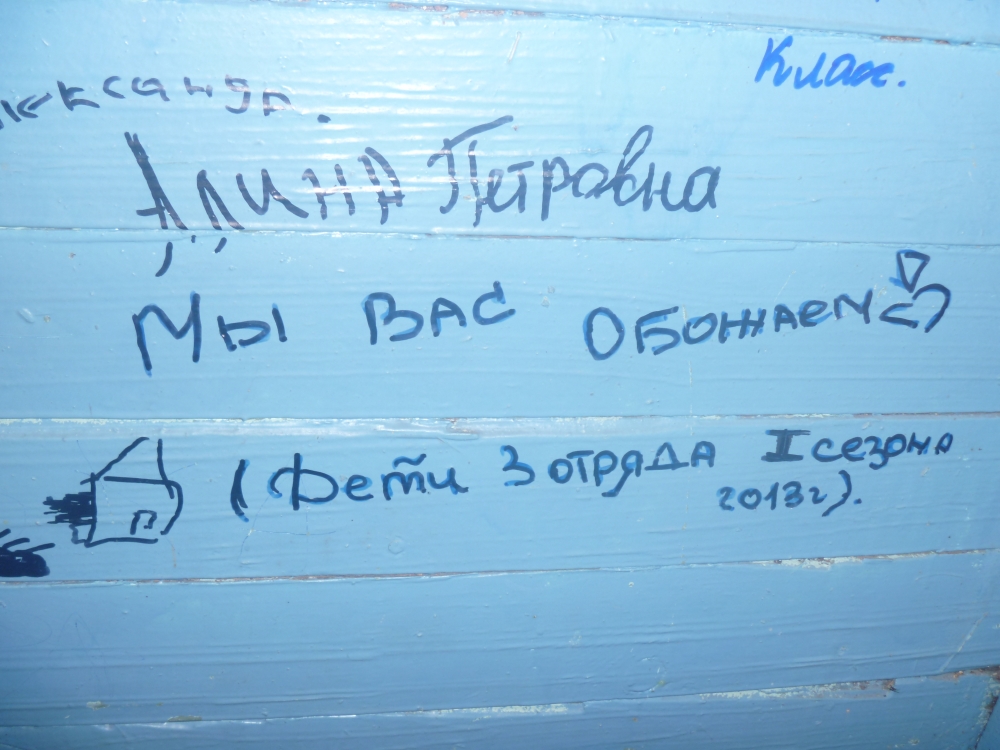 Класс.
Алина Петровна
Мы ВАС ОБОЖАЕМ
(Дети 3 отряда I сезона
2013г).